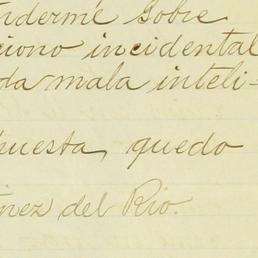 enderme sobre
ciono incidental
da mala inteli-
puesta, quedo
nez del Rio.